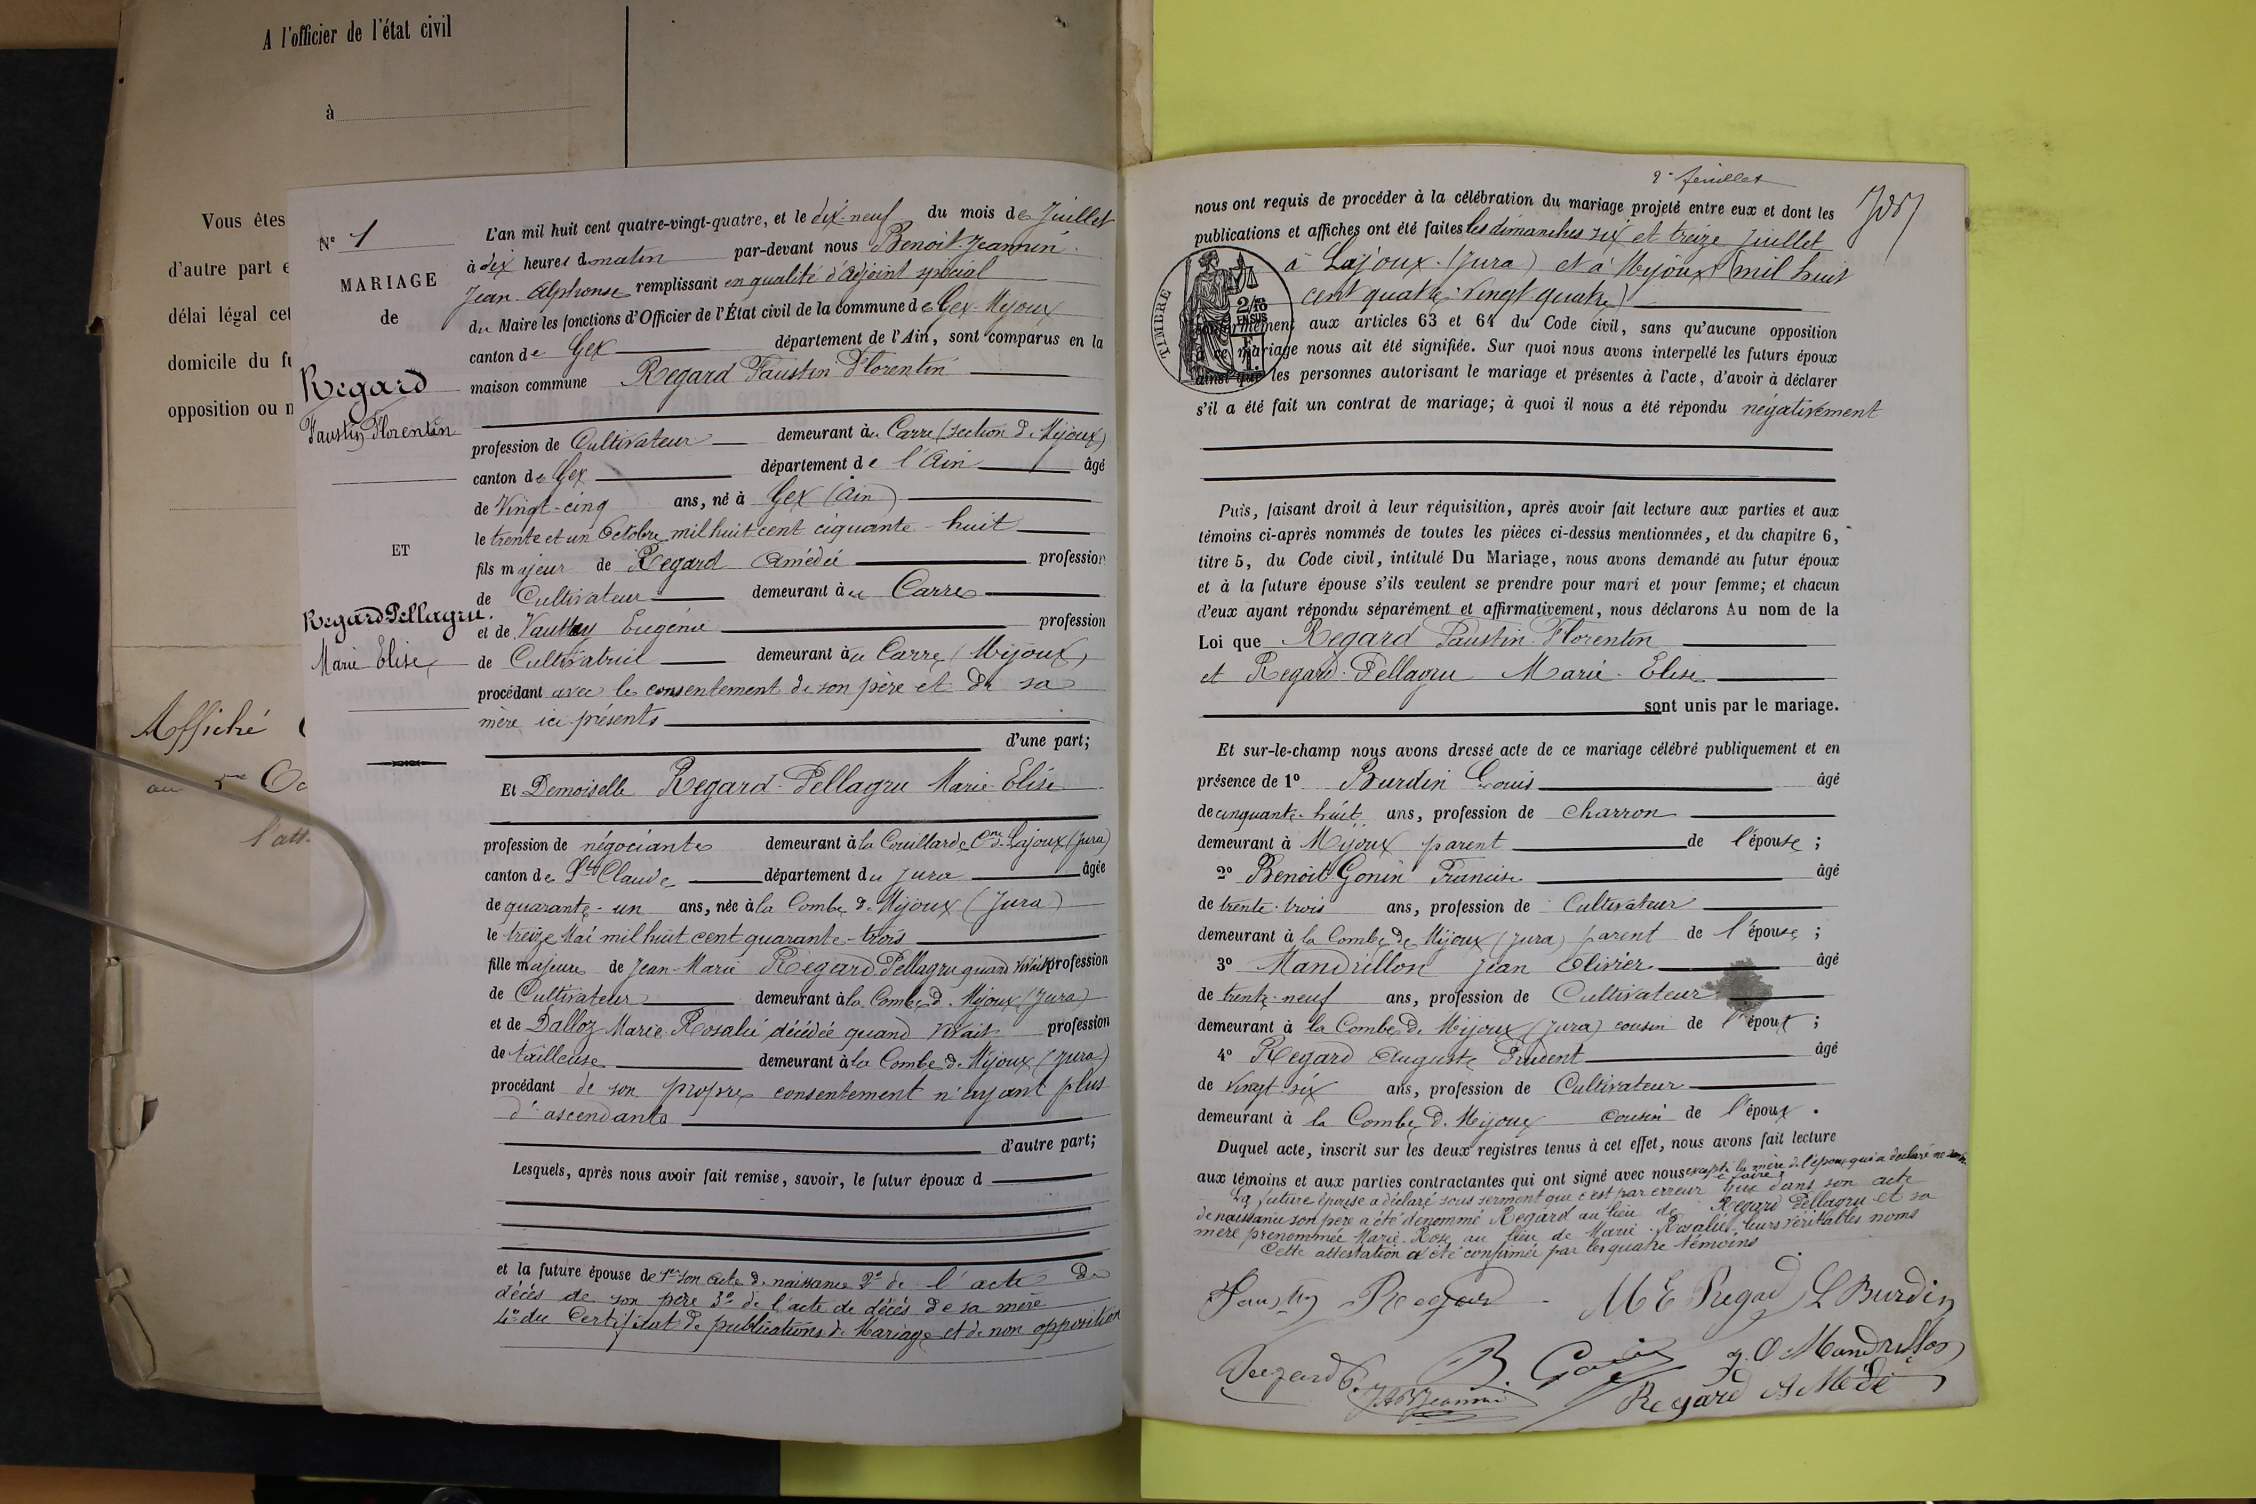 A l'officier de l'état civil
à
Vous êtes
d'autre part e
délai légal cet
domicile du fu
opposition ou n
Affiché
au 5me Oc
l'att.
Nº 1
MARIAGE
de
Regard
Faustin Florentin
ET
Regard Pellagru.
Marie Elise
L'an mil huit cent quatre-vingt-quatre, et le dix-neuf du mois de Juillet
à dix heures d matin par-devant nous Benoit-Jeannin
Jean Alphonse remplissant en qualité d'Adjoint spécial
du Maire les fonctions d'Officier de l'État civil de la commune de Gex-Mijoux
canton de Gex département de l'Ain, sont comparus en la
maison commune Regard Faustin Florentin
profession de Cultivateur demeurant à la Carre (section de Mijoux)
canton de Gex département de l'Ain âgé
de Vingt-cinq ans, né à Gex (Ain)
le trente et un Octobre mil huit cent ciquante-huit
fils majeur de Regard Amédée profession
de Cultivateur demeurant à la Carre
et de Vauthy Eugénie profession
de Cultivatrice demeurant à la Carre (Mijoux)
procédant avec le consentement de son père et de sa
mère ici présents
d'une part;
Et Demoiselle Regard-Pellagru Marie Elise
profession de négociante demeurant à la Couillarde Cne de Lajoux (Jura)
canton de St Claude département du Jura âgée
de quarante-un ans, née à la Combe de Mijoux (Jura)
le treize Mai mil huit cent quarante-trois
fille majeure de Jean-Marie Regard Pellagru quand vivait profession
de Cultivateur demeurant à la Combe de Mijoux (Jura)
et de Dalloz Marie Rosalie décédée quand vivait profession
de tailleuse demeurant à la Combe de Mijoux (Jura)
procédant de son propre consentement n'ayant plus
d'ascendants
d'autre part;
Lesquels, après nous avoir fait remise, savoir, le futur époux d
et la future épouse de 1º son acte de naissance 2º de l'acte de
décès de son père 3º de l'acte de décès de sa mère
4º du Certificat de publications de Mariage et de non opposition
2e feuillet
nous ont requis de procéder à la célébration du mariage projeté entre eux et dont les
publications et affiches ont été faites les dimanches six et treize Juillet
à Lajoux (Jura) et à Mijoux (mil huit
cent quatre-vingt quatre)
TIMBRE
2/10
EN SUS
conformément aux articles 63 et 64 du Code civil, sans qu'aucune opposition
à ce mariage nous ait été signifiée. Sur quoi nous avons interpellé les futurs époux
ainsi que les personnes autorisant le mariage et présentes à l'acte, d'avoir à déclarer
s'il a été fait un contrat de mariage; à quoi il nous a été répondu négativement
Puis, faisant droit à leur réquisition, après avoir fait lecture aux parties et aux
témoins ci-après nommés de toutes les pièces ci-dessus mentionnées, et du chapitre 6,
titre 5, du Code civil, intitulé Du Mariage, nous avons demandé au futur époux
et à la future épouse s'ils veulent se prendre pour mari et pour femme; et chacun
d'eux ayant répondu séparément et affirmativement, nous déclarons Au nom de la
Loi que Regard Faustin Florentin
et Regard-Pellagru Marie-Elise
sont unis par le mariage.
Et sur-le-champ nous avons dressé acte de ce mariage célébré publiquement et en
présence de 1º Burdin Louis âgé
de cinquante-huit ans, profession de charron
demeurant à Mijoux parent de l'épouse;
2º Benoit Gonin Francise âgé
de trente-trois ans, profession de Cultivateur
demeurant à la Combe de Mijoux (Jura) parent de l'épouse;
3º Mandrillon Jean Olivier âgé
de trente-neuf ans, profession de Cultivateur
demeurant à la Combe de Mijoux (Jura) cousin de l'époux;
4º Regard Auguste Prudent âgé
de vingt-six ans, profession de Cultivateur
demeurant à la Combe de Mijoux cousin de l'époux.
Duquel acte, inscrit sur les deux registres tenus à cet effet, nous avons fait lecture
aux témoins et aux parties contractantes qui ont signé avec nous excepté la mère de l'époux qui a déclaré ne savoir
le faire
La future épouse a déclaré sous serment que c'est par erreur que dans son acte
de naissance son père a été dénommé Regard au lieu de Regard Pellagru et sa
mère prénommée Marie Rose au lieu de Marie-Rosalie, leurs véritables noms
Cette attestation a été confirmée par les quatre témoins
Faustin Regard M E Regad L Burdin
Regard B. Gonin J. O Mandrillon
J A B Jeannin Regard AMédé